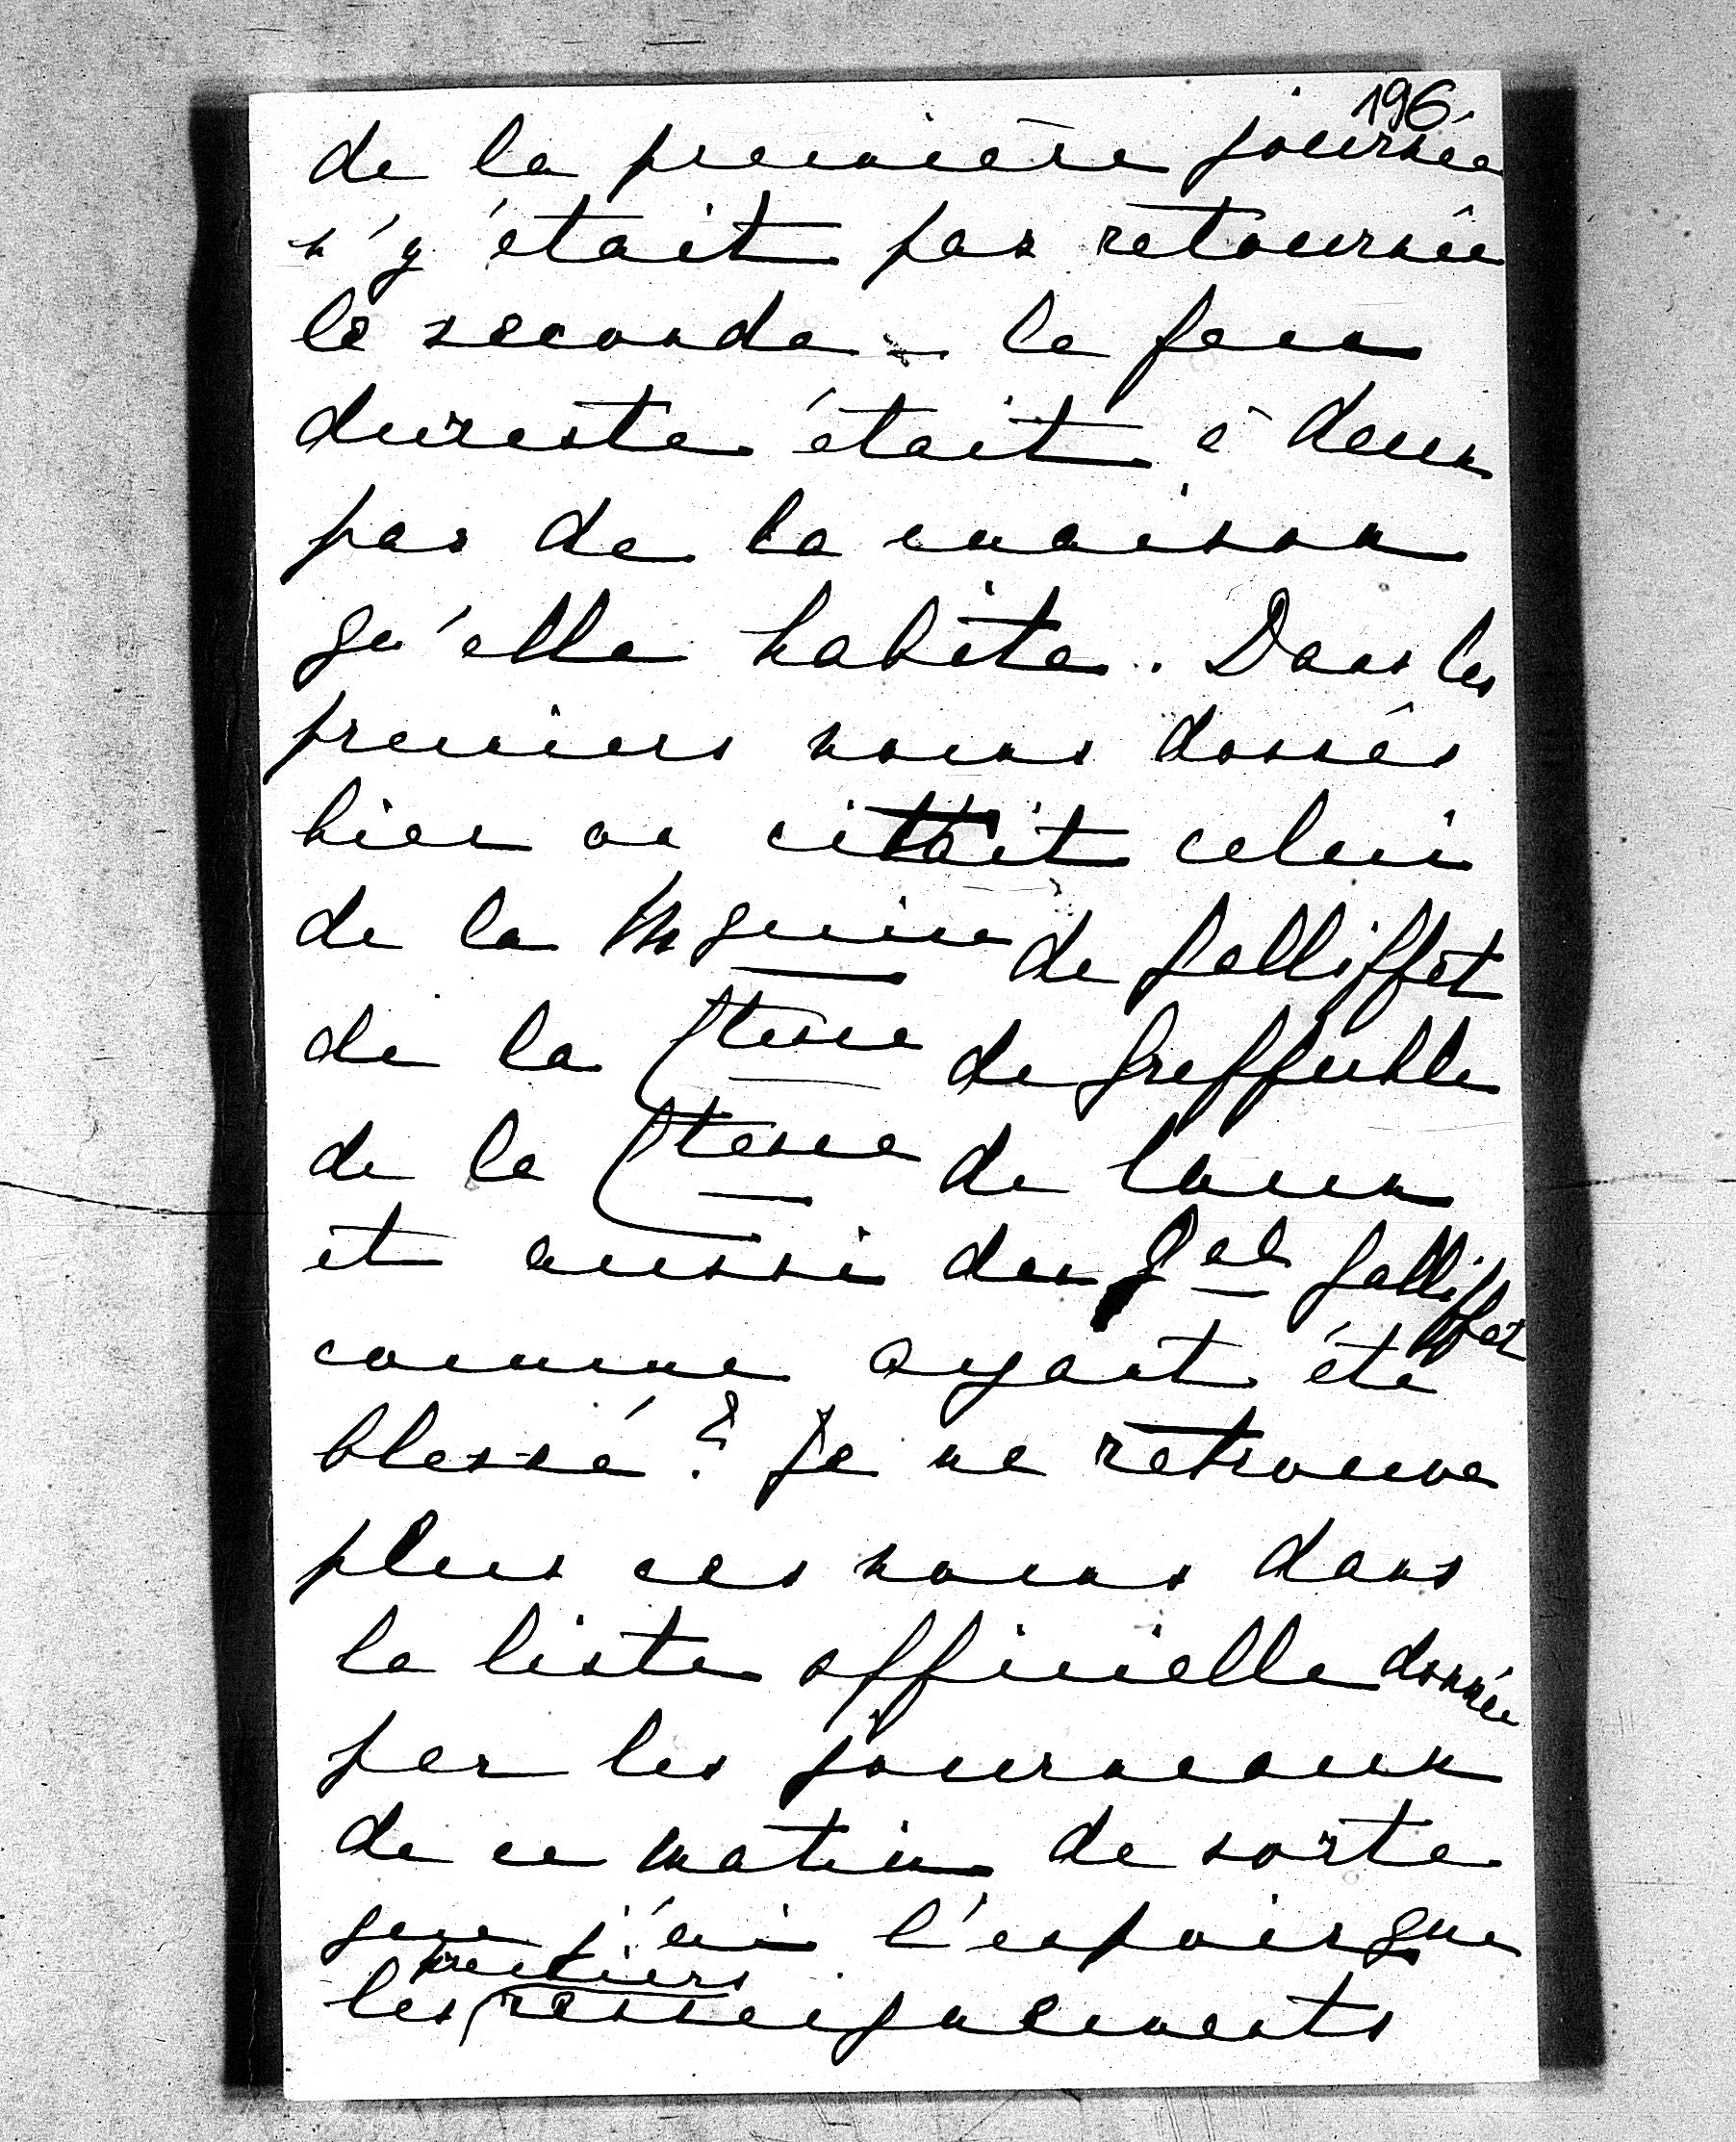 196
de la première journée
n'y était pas retournée
le seconde - le feu
dureste était à deux
pas de la maison
qu'elle habite. Dans les
premiers noms donnés
hier on citait celui
de la Mquise de Galliffet
de la Ctesse de Greffeulle
de la Ctesse de Luxx
et aussi du Gal Galliffet
comme ayant été
blessé? Je ne retrouve
plus ces noms dans
la liste officielle donnée
par les journaux
de ce matin de sorte
que j'ai l'espoir que
les premiers renseignements